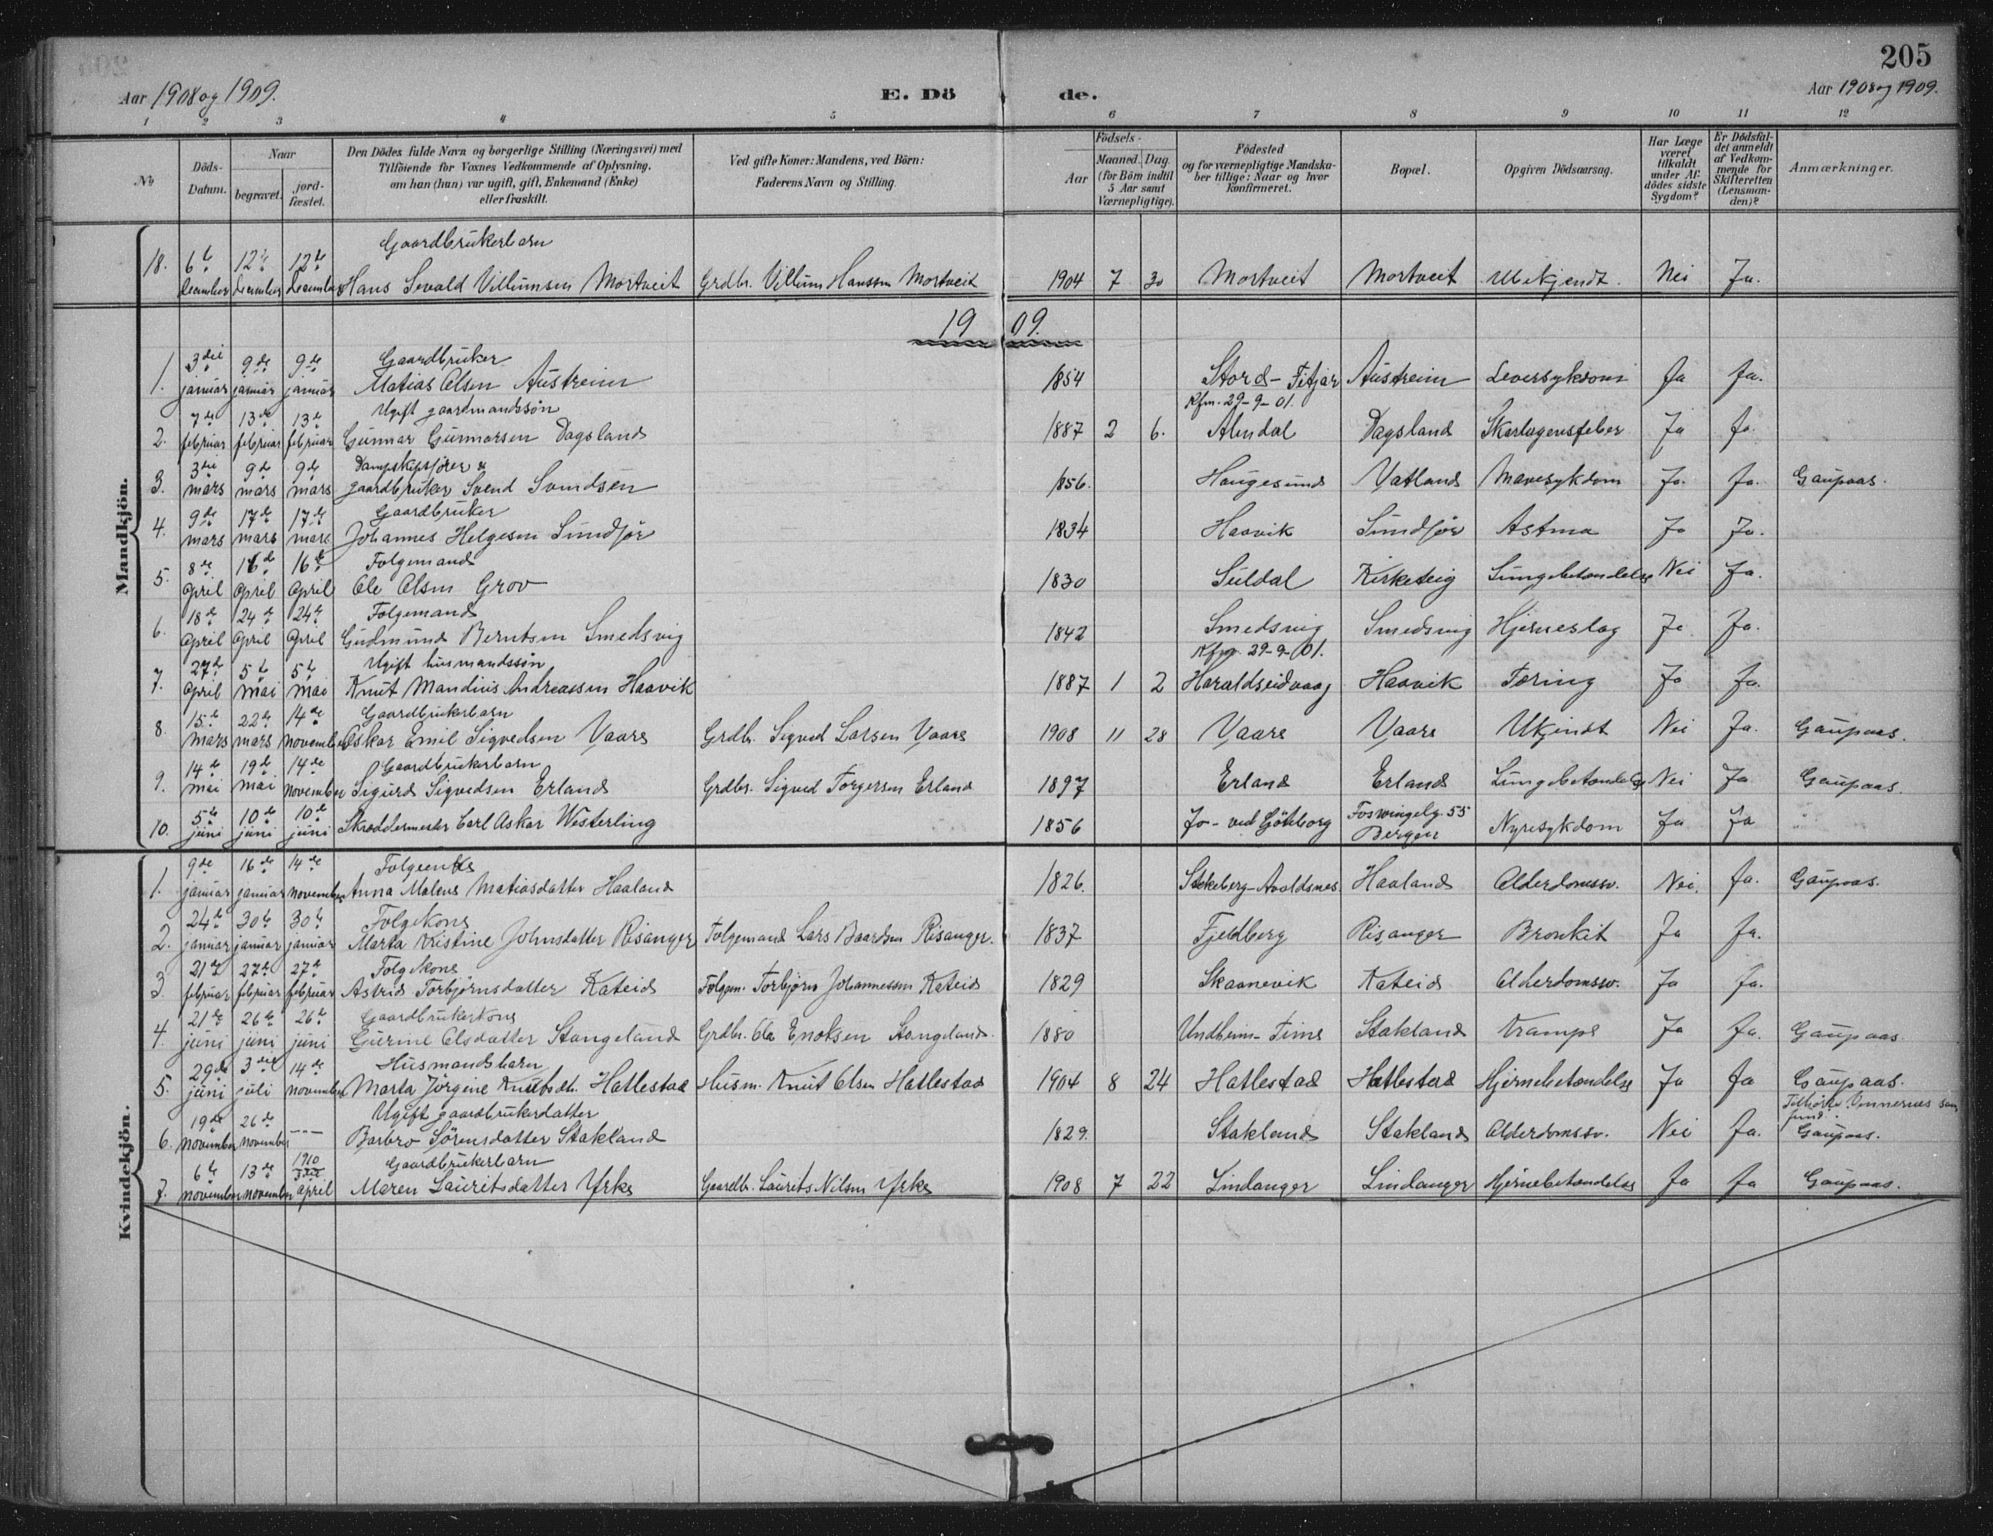 205
Aar 1908 og 1909.
E. Dö de.
Aar 1908 og 1909.
1 2 3 4 5 6 7 8 9 10 11 12
No
Döds-Datum.
Naar
begravet.
jord-fæstet.
Den Dödes fulde Navn og borgerlige Stilling (Næringsvei) med
Tilföiende for Voxnes Vedkommende af Oplysning,
om han (hun) var ugift, gift, Enkemand (Enke)
eller fraskilt.
Ved gifte Koner: Mandens, ved Börn:
Faderens Navn og Stilling.
Födsels-
Aar
Maaned. Dag.
(for Börn indtil
5 Aar samt
Værnepligtige).
Födested
og for værnepligtige Mandska-
ber tillige: Naar og hvor
konfirmeret.
Bopæl.
Opgiven Dödsaarsag.
Har Læge
været
tilkaldt
under Af-
dödes sidste
Sygdom?
Er Dödsfal-
det anmeldt
af Vedkom-
mende for
Skifteretten
(Lensman-
den)?
Anmærkninger.
Mandkjön.
Gaardbrukerbarn
18. 6te december 12te december 12te december Hans Sevald Villumsen Mortveit Grdbr. Villum Hanssen Mortveit 1904 7 30 Mortveit Mortveit Ubekjendt. Nei Ja.
19 09.
Gaardbruker
1. 3die januar 9de januar 9de januar Matias Olsen Austreim 1854 Stord - Fitjar Austreim Leversykdom Ja Ja.
Ugift gaardmandssøn Kfm. 29-9-01.
2. 7de februar 13de februar 13de februar Gunnar Gunnarsen Dagsland 1887 2 6. Alndal Dagsland Skarlagensfeber Ja Ja.
Dampskipsfører &
3. 3die mars 9de mars 9de mars gaardbruker Svend Svendsen 1856. Haugesund Vatland Mavesykdom Ja. Ja. Gaupaas.
Gaardbruker
4. 9de mars 17de mars 17de mars Johannes Helgesen Sundfør 1834 Haavik Sundfør Astma Ja Ja.
Folgemand
5. 8de April 16de April 16de April Ole Olsen Grov 1830 Suldal Kirketeig Lungebetændelse Nei Ja.
Folgemand
6. 18de April 24de April 24de April Gudmund Berntsen Smedsvig 1842 Smedsvig Smedsvig Hjerneslag Ja. Ja.
Ugift husmandssøn Kfm. 29-9-01.
7. 27de April 5te mai 5te mai Knut Mandius Andreassen Haavik 1887 1 2 Haraldseidvaag Haavik Tæring Ja Ja.
Gaardbrukerbarn
8. 15de mars 22de mars 14de november Oskar Emil Sigvedsen Vaare Grdbr. Sigved Larsen Vaare 1908 11 28 Vaare Vaare Ukjendt Nei Ja. Gaupaas.
Gaardbrukerbarn
9. 14de mai 19de mai 14de november Sigurd Sigvedsen Erland Grdbr. Sigved Torgersen Erland 1897 Erland Erland Lungebetændelse Nei Ja Gaupaas.
10. 5te juni 10de juni 10de juni Skræddermester Carl Oskar Westerling 1856 Jo- ved Göteborg Bergen Nyresykdom Ja Ja
Kvindekjön.
Folgeenke
1. 9de januar 16de januar 14de november Anna Malene Matiasdatter Haaland 1826. Stokeberg - Avaldsnes Haaland Alderdomssv. Nei. Ja. Gaupaas.
Folgekone
2. 24de januar 30te januar 30te januar Marta Kristine Johnsdatter Risanger Folgemand Lars Baardsen Risanger. 1837 Fjeldberg Risanger Bronkit Ja Ja.
Folgekone
3. 21de februar 27de februar 27de februar Astrid Torbjørnsdatter Kateid Folgem. Torbjørn Johannessen Kateid 1829 Skaanevik Kateid Alderdomssv. Ja Ja.
Gaardbrukerkone
4. 21de juni 26de juni 26de juni Gurine Olsdatter Stangeland Grdbr. Ola Enoksen Stangeland. 1880 Undheim - Time Stakland Krampe Ja Ja. Gaupaas.
Husmandsbarn
5. 29de juni 3die juli 14de november Marta Jørgine Knutsdt. Hatlestad Husm. Knut Olsen Hatlestad 1904 8 24 Hatlestad Hatlestad Hjernebetændelse Ja Ja Gaupaas.
Ugift gaardbrukerdatter
6. 19de november 26de november --- Barbro Sørensdatter Stakland 1829. Stakland Stakland Alderdomssv. Nei Ja. Tilhørte Vennernes samfund. Gaupaas.
Gaardbrukerbarn
7. 6te november 13de november 1910 3die april Maren Lauritsdatter Yrke Gaardb. Laurits Nilsen Yrke 1908 7 22 Lindanger Lindanger Hjernebetændelse Ja Ja Gaupaas.